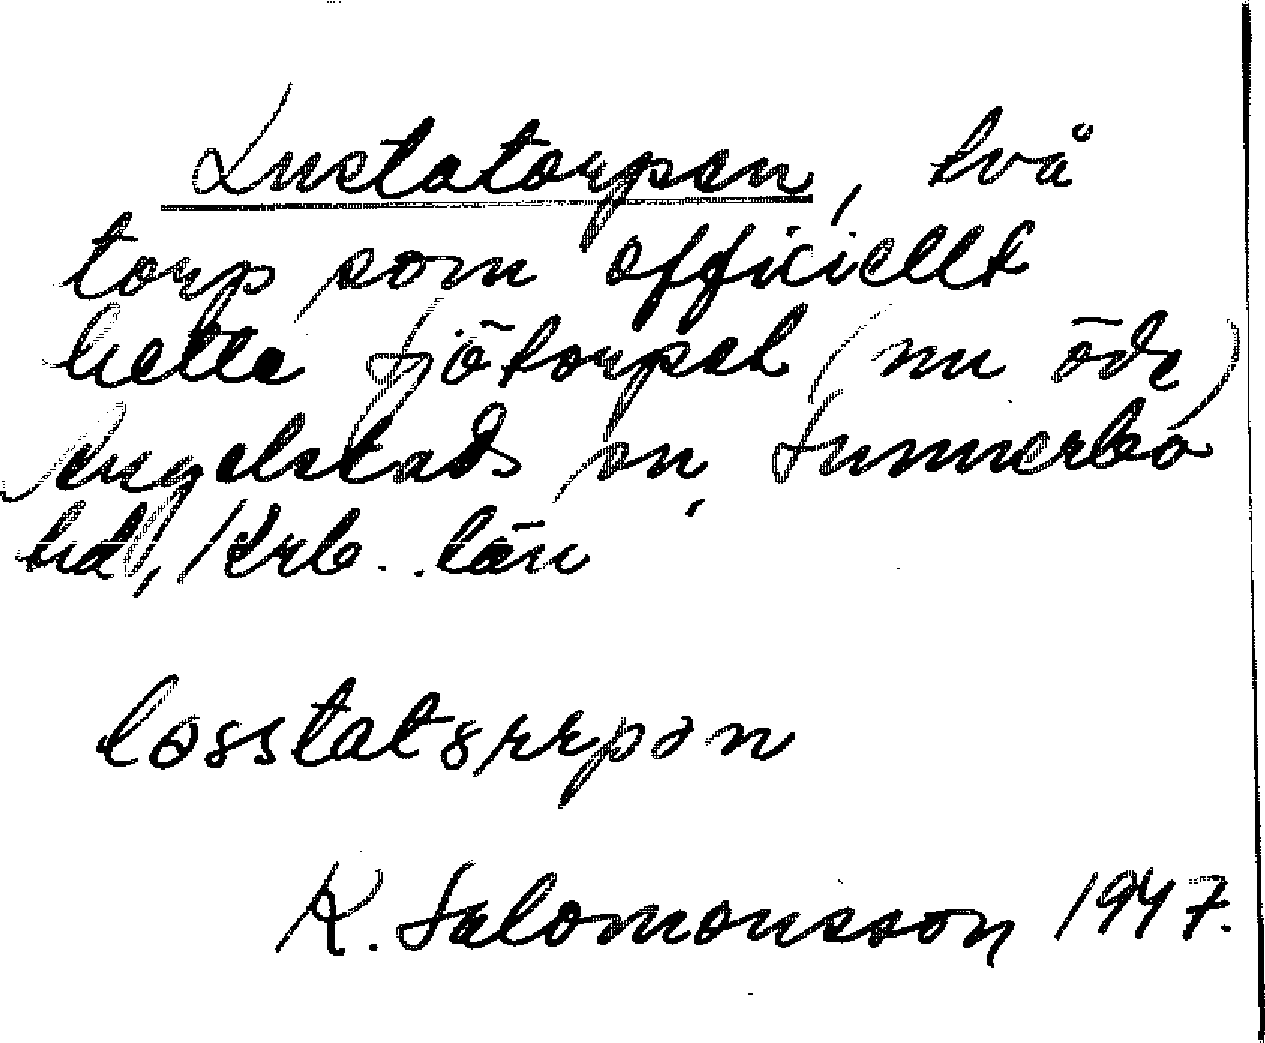 Lustatorpen, två
torp som officiellt
hette Sjötorpet (nu öde)
Angelstads sn, Sunnerbo
hd, Krb. län
losstatorpan
K. Salomonsson 1947.